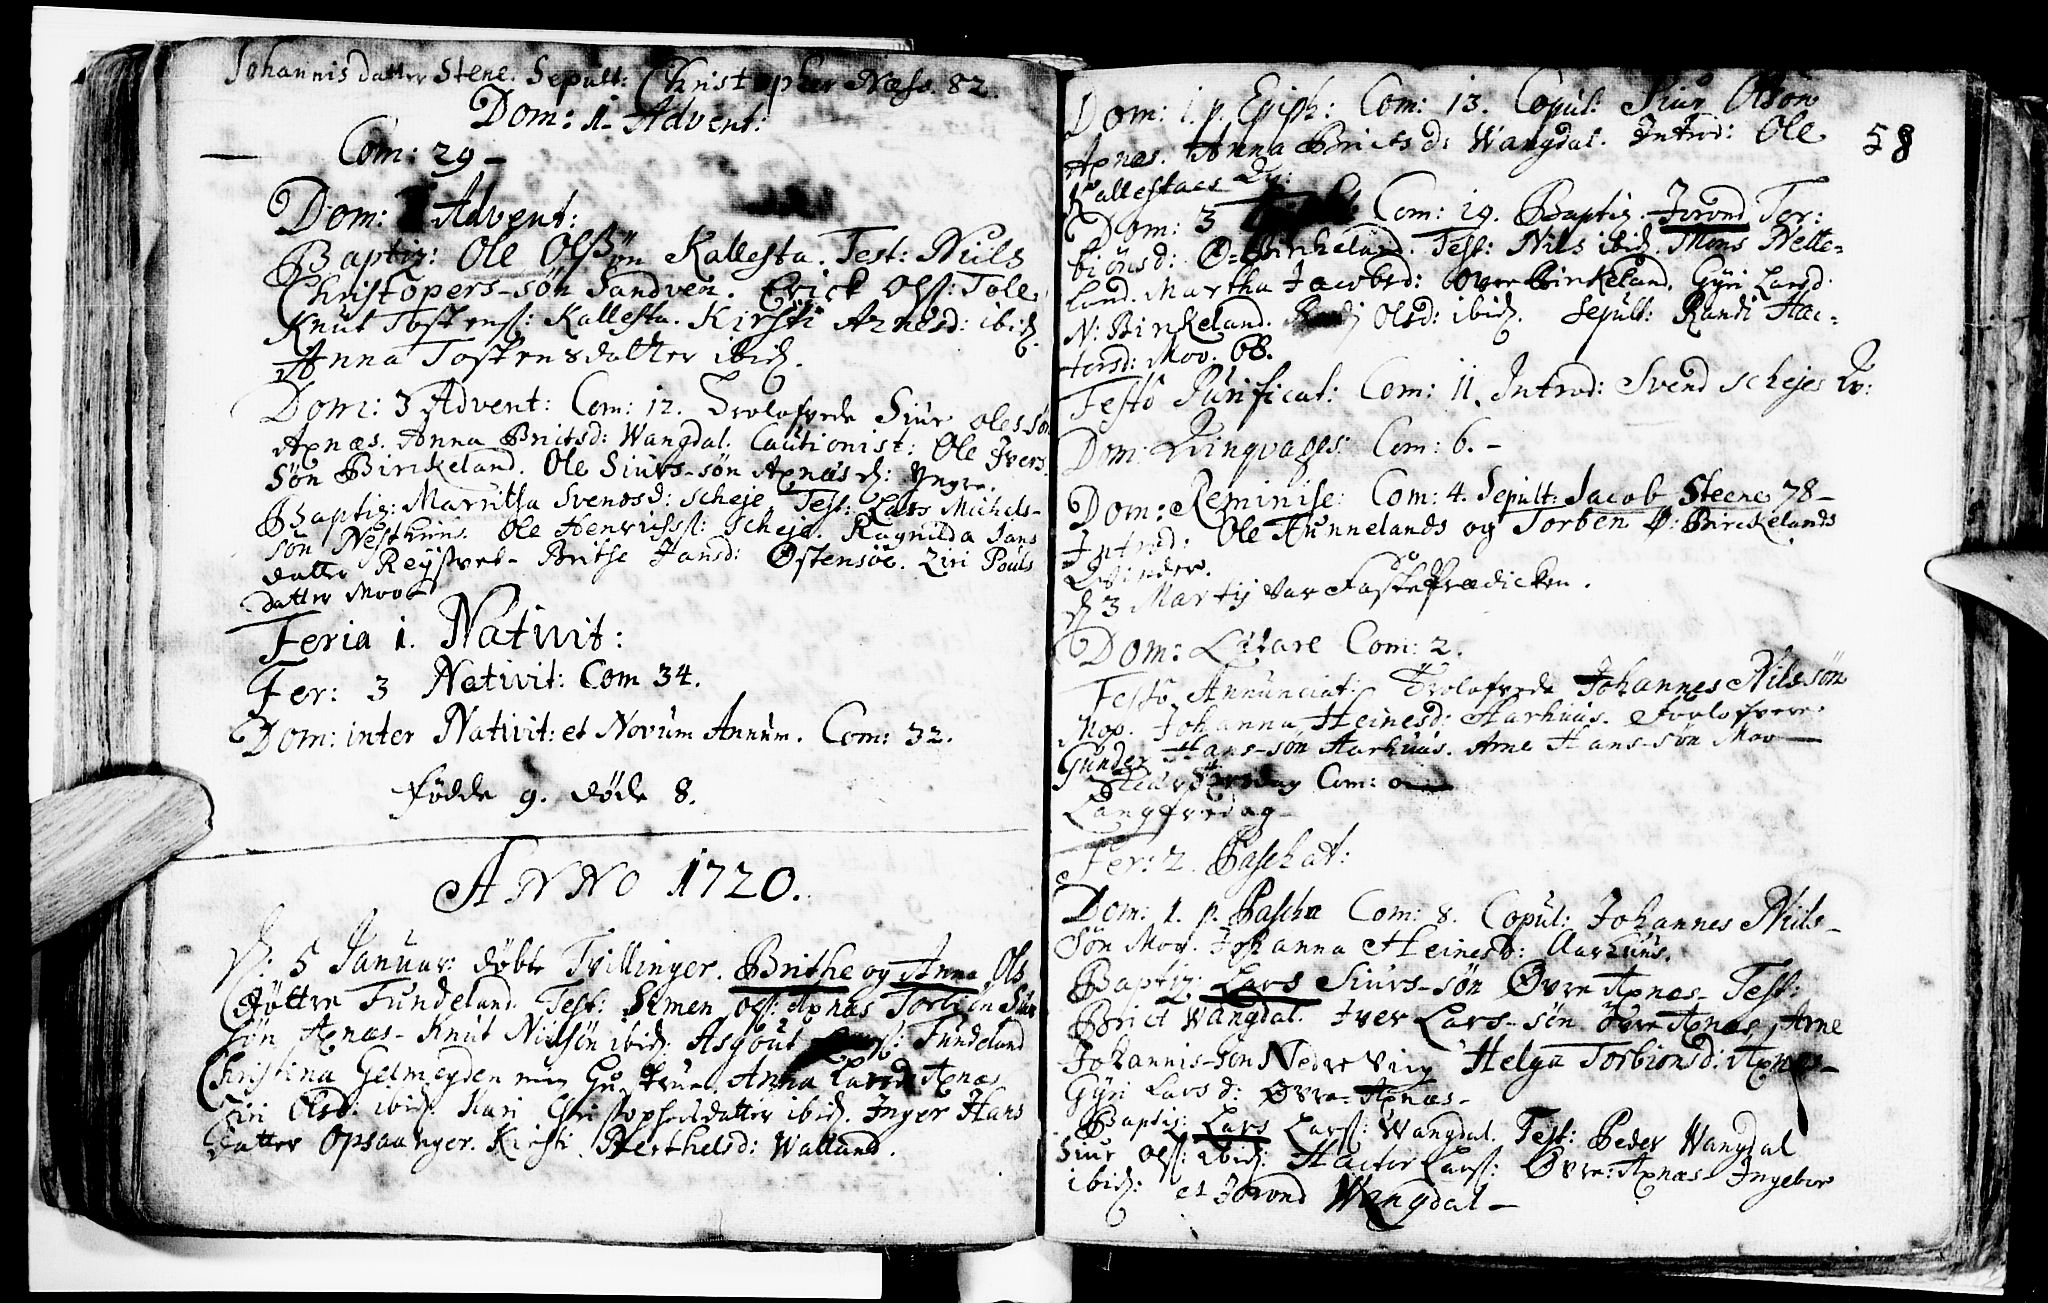 Johannis datter Stene. Sepult: Christopher Næss. 82.
Dom: 1 Advent:
Com: 29 -
Dom: Advent:
Baptiz: Ole Olssøn Kallesta. Test: Niels
Christopers-søn Sandven. Erick Ols: Tole
Knut Tostens: Kallesta. Kirsti Arnesd: ibid.
Anna Tostensdatter ibid.
Dom: 3 Advent: Com: 12. Trolofvede Siur Oles-søn
Axnæs. Anna Britsd: Wangdal. Cautionist: Ole Ivers
søn Birckeland. Ole Siurs-søn Axnæs d: Yngre.
Baptiz: Marritha Svendsd: Scheje Test: Lars Michels-
søn Nesthuus. Ole Henrichss: Scheje. Ragnilda Jans
datter Reystvet - Brithe Jansd: Østensøe. Ziri Pouls
datter Moo
Feria 1. Nativit:
Fer: 3 Nativit: Com 34.
Dom: inter Nativit: et Novum Annum. Com: 32.
Fødde 9. døde 8.
ANNO 1720.
D: 5 Januar: døbte Tvillinger. Brithe og Anna Ols
døttre Fundeland. Test: Simen Ols: Axnæs Torbiøn Siur
søn Axnæs - Knut Nilssøn ibid. Asgout Fundeland
Christina Gelmeyden min Hustrue Anna Larsd: Axnæs
Siri Olsd: ibid. Kari Christophersdatter ibid. Inger Hans
datter Opsanger. Kirsti Berthelsd: Walland.
58
Dom: 1. p. Epiph: Com: 13. Copul: Siur Olsøn
Axnæs. Anna Britsd: Wangdal. Introd: Ole
Kallestaes Qv:
Dom: 3 Com: 19. Baptiz. Jorond Tor:
biønsd: Ø: Birkeland. Test: Nils ibid. Mons Nette-
land. Martha Jacobsd: Øvre Birkeland. Gyri Larsd:
N: Birkeland. Olsd: ibid. Sepult: Randi Hac-
torsd: Moo. 68.
Festo Purificat: Com: 11. Introd: Svend Schejes Qv:
Dom: Qvinqvages: Com: 6. -
Dom: Reminise: Com: 4. Sepult: Jacob Steene 78 -
Introd: Ole Funnelands og Torben Ø: Birckelands
Qvinder.
d 3 Martij var Fastepredicken.
Dom: Lætare Com: 2.
Festo Annunciat: Trolofvede Johannes Nilssøn
Moo. Johanna Heinesd: Aarhuus. Forlofvere:
Gunder Hans-søn Aarhuus. Arne Hans-søn Moo
Skiærtorsdag Com: 0
Langfredag -
Fer: 2. Paschat:
Dom: 1. p. Pascha Com: 8. Copul: Johannes Niils-
søn Moo. Johanna Heinesd: Aarhuus.
Baptiz: Lars Siurs-søn Øvre Axnæs - Test:
Brict Wangdal. Iver Lars-søn Øvre Axnæs, Arne
Johannis-søn Nedre Viig Helga Torbionsd: Axnæs -
Gyri Larsd: Øvre-Axnæs -
Baptiz: Lars Larss: Wangdal. Test: Peder Wangdal
Siur Ols: ibid: Hactor Larss: Øvre: Axnæs - Ingebor
ibid: et Jorond Wangdal -